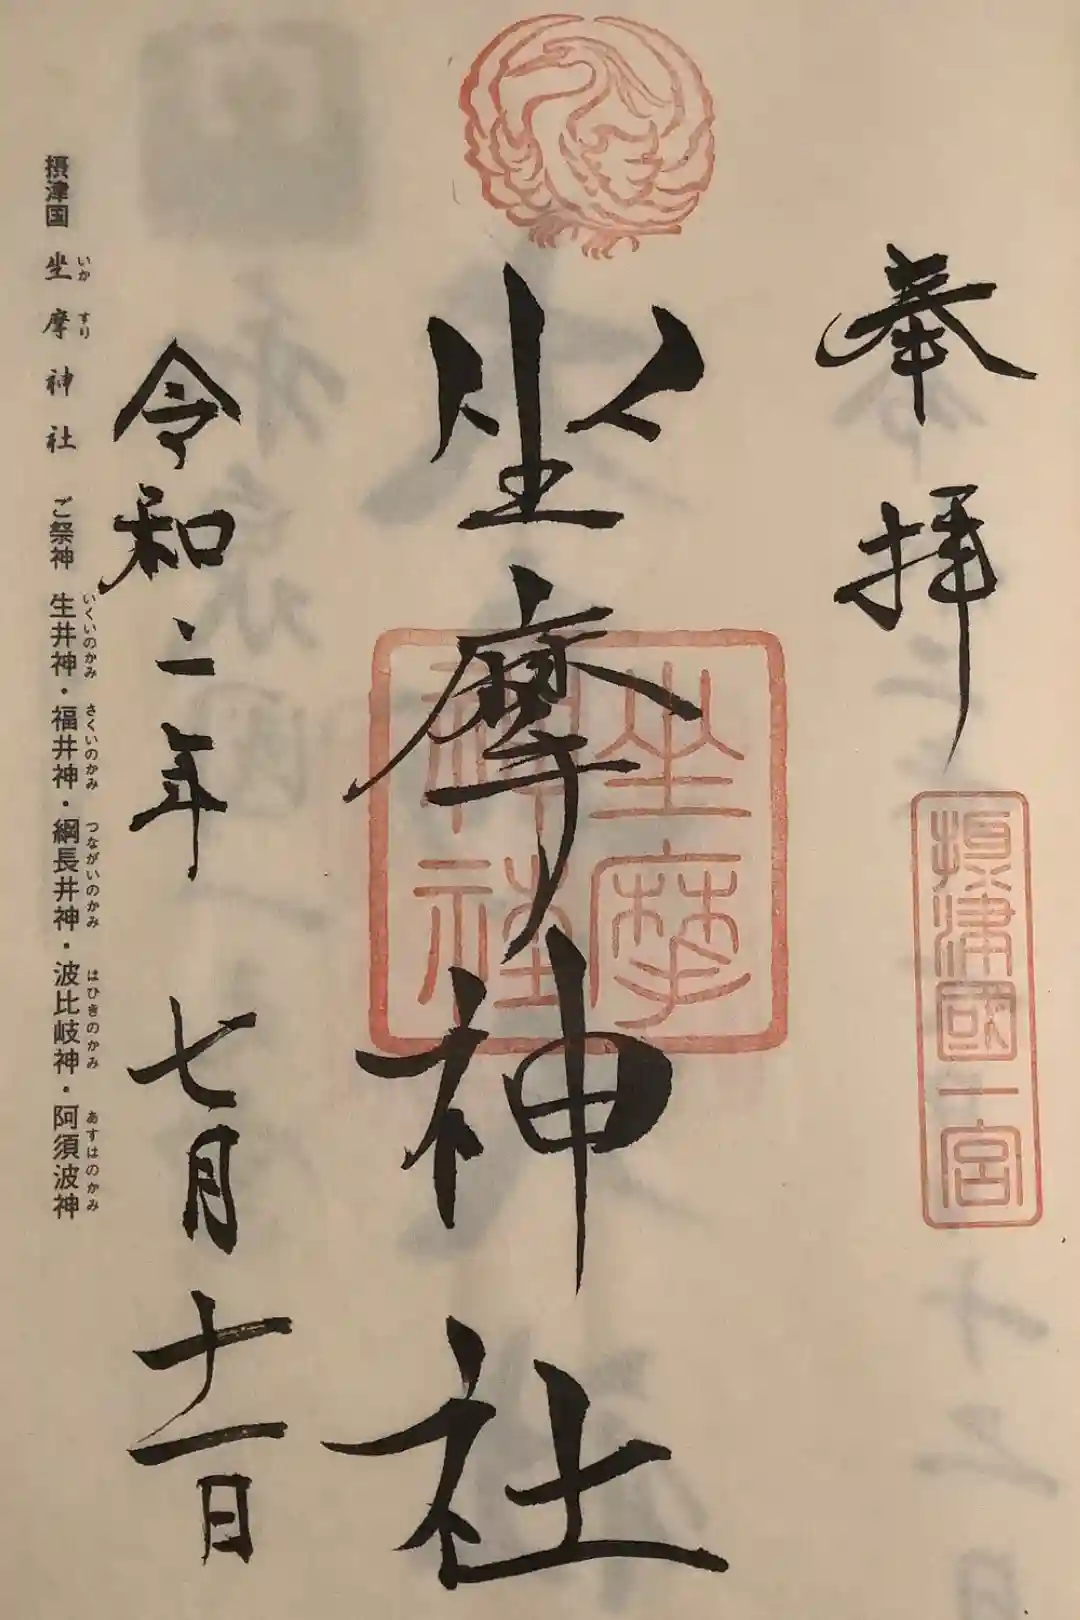 奉拝
摂津國一宮
坐摩神社
坐摩
神社
令和二年 七月十一日
摂津国 坐摩神社 ご祭神 生井神・福井神・綱長井神・波比岐神・阿須波神
いか すり いくいのかみ さくいのかみ つながいのかみ はひきのかみ あすはのかみ